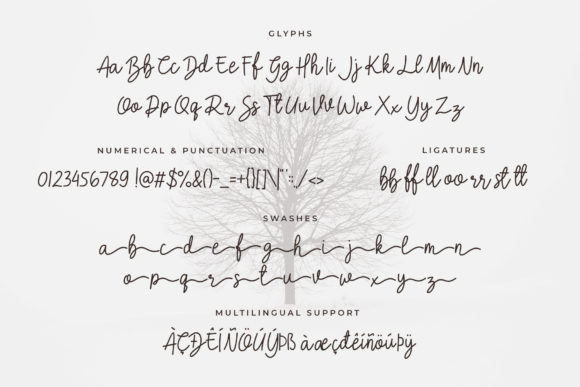 GLYPHS
Aa Bb Cc Dd Ee Ff Gg Hh Ii Jj Kk Ll Mm Nn
Oo Pp Qq Rr Ss Tt Uu Vv Ww Xx Yy Zz
NUMERICAL & PUNCTUATION
0123456789 !@#$%&()-_=+{}[]\|"':;,./<>
LIGATURES
bb ff ll oo rr st tt
SWASHES
a b c d e f g h i j k l m n
o p q r s t u v w x y z
MULTILINGUAL SUPPORT
ÀÇÐÊÍÑÖÚÝÞß àæçđêíñöúþÿ